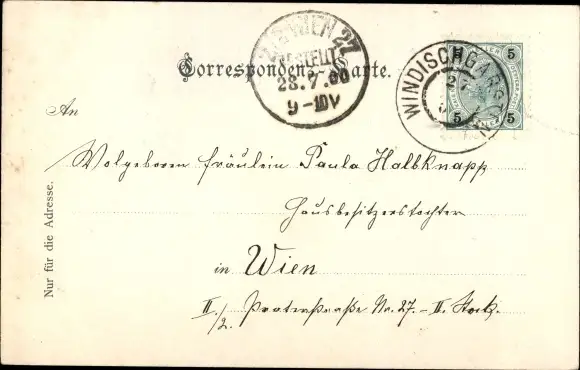 Correspondenz-Karte.
2/2 WIEN 27
BESTELLT
28.7.00
9-10V
WINDISCHGARSTEN
27
5 5
5 5
An
Wolgeboren Fräulein Paula Halbknapp
Hausbesitzerstochter
in Wien
II./2. Praterstraße Nr. 27. - II. Stock.
Nur für die Adresse.